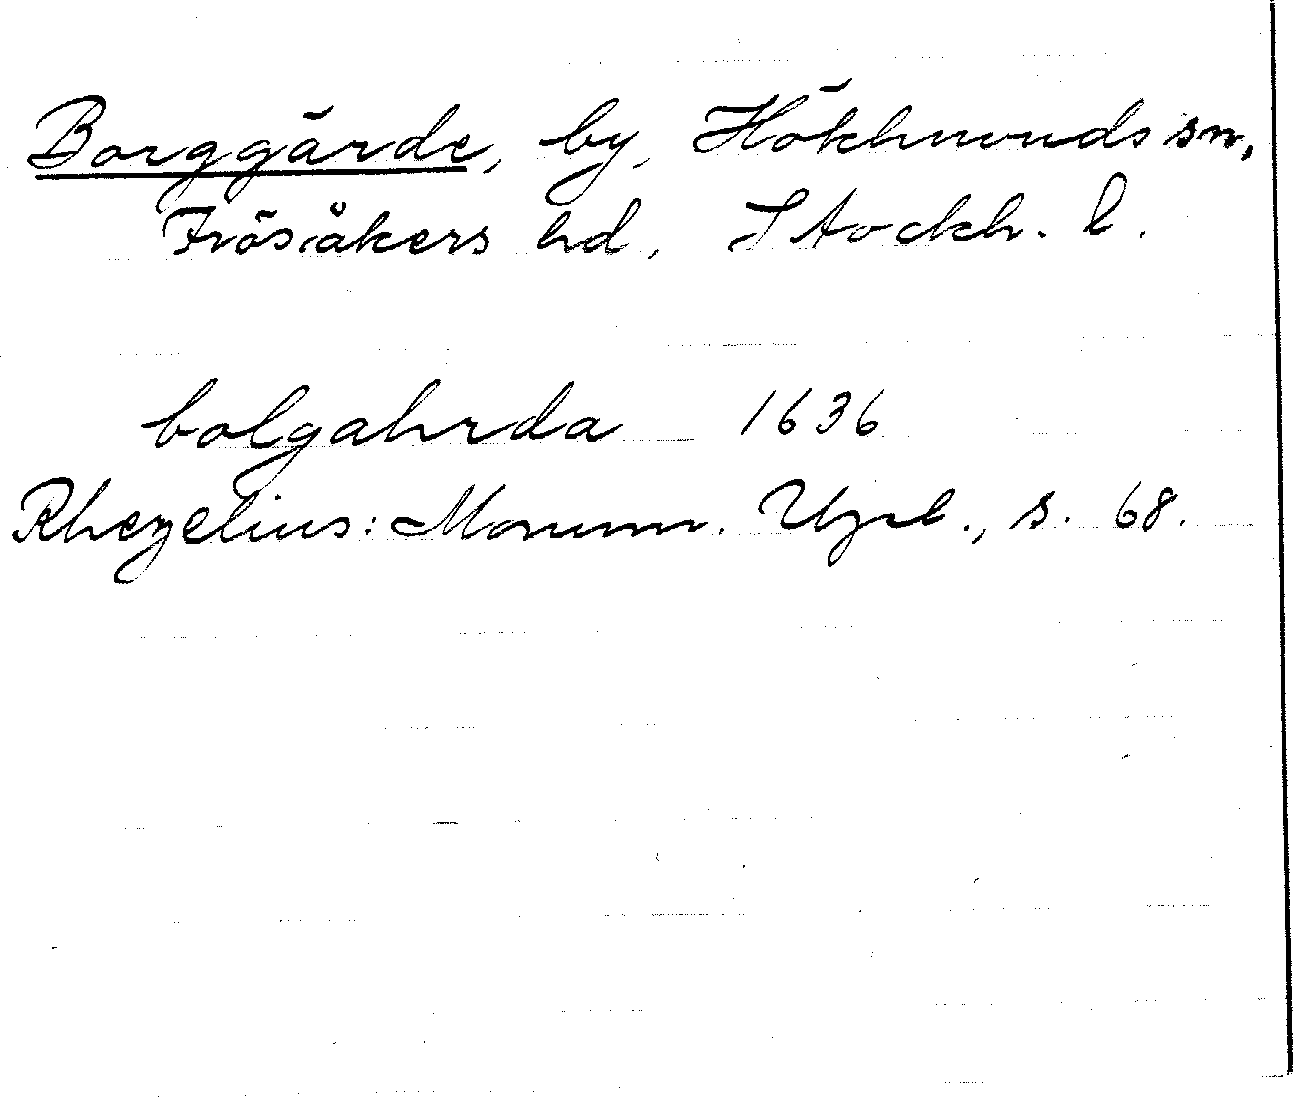 Borggärde, by, Hökhuvuds sn,
Frösåkers hd, Stockh. l.
bolgahrda 1636
Rhezelius: Monum. Upl., s. 68.